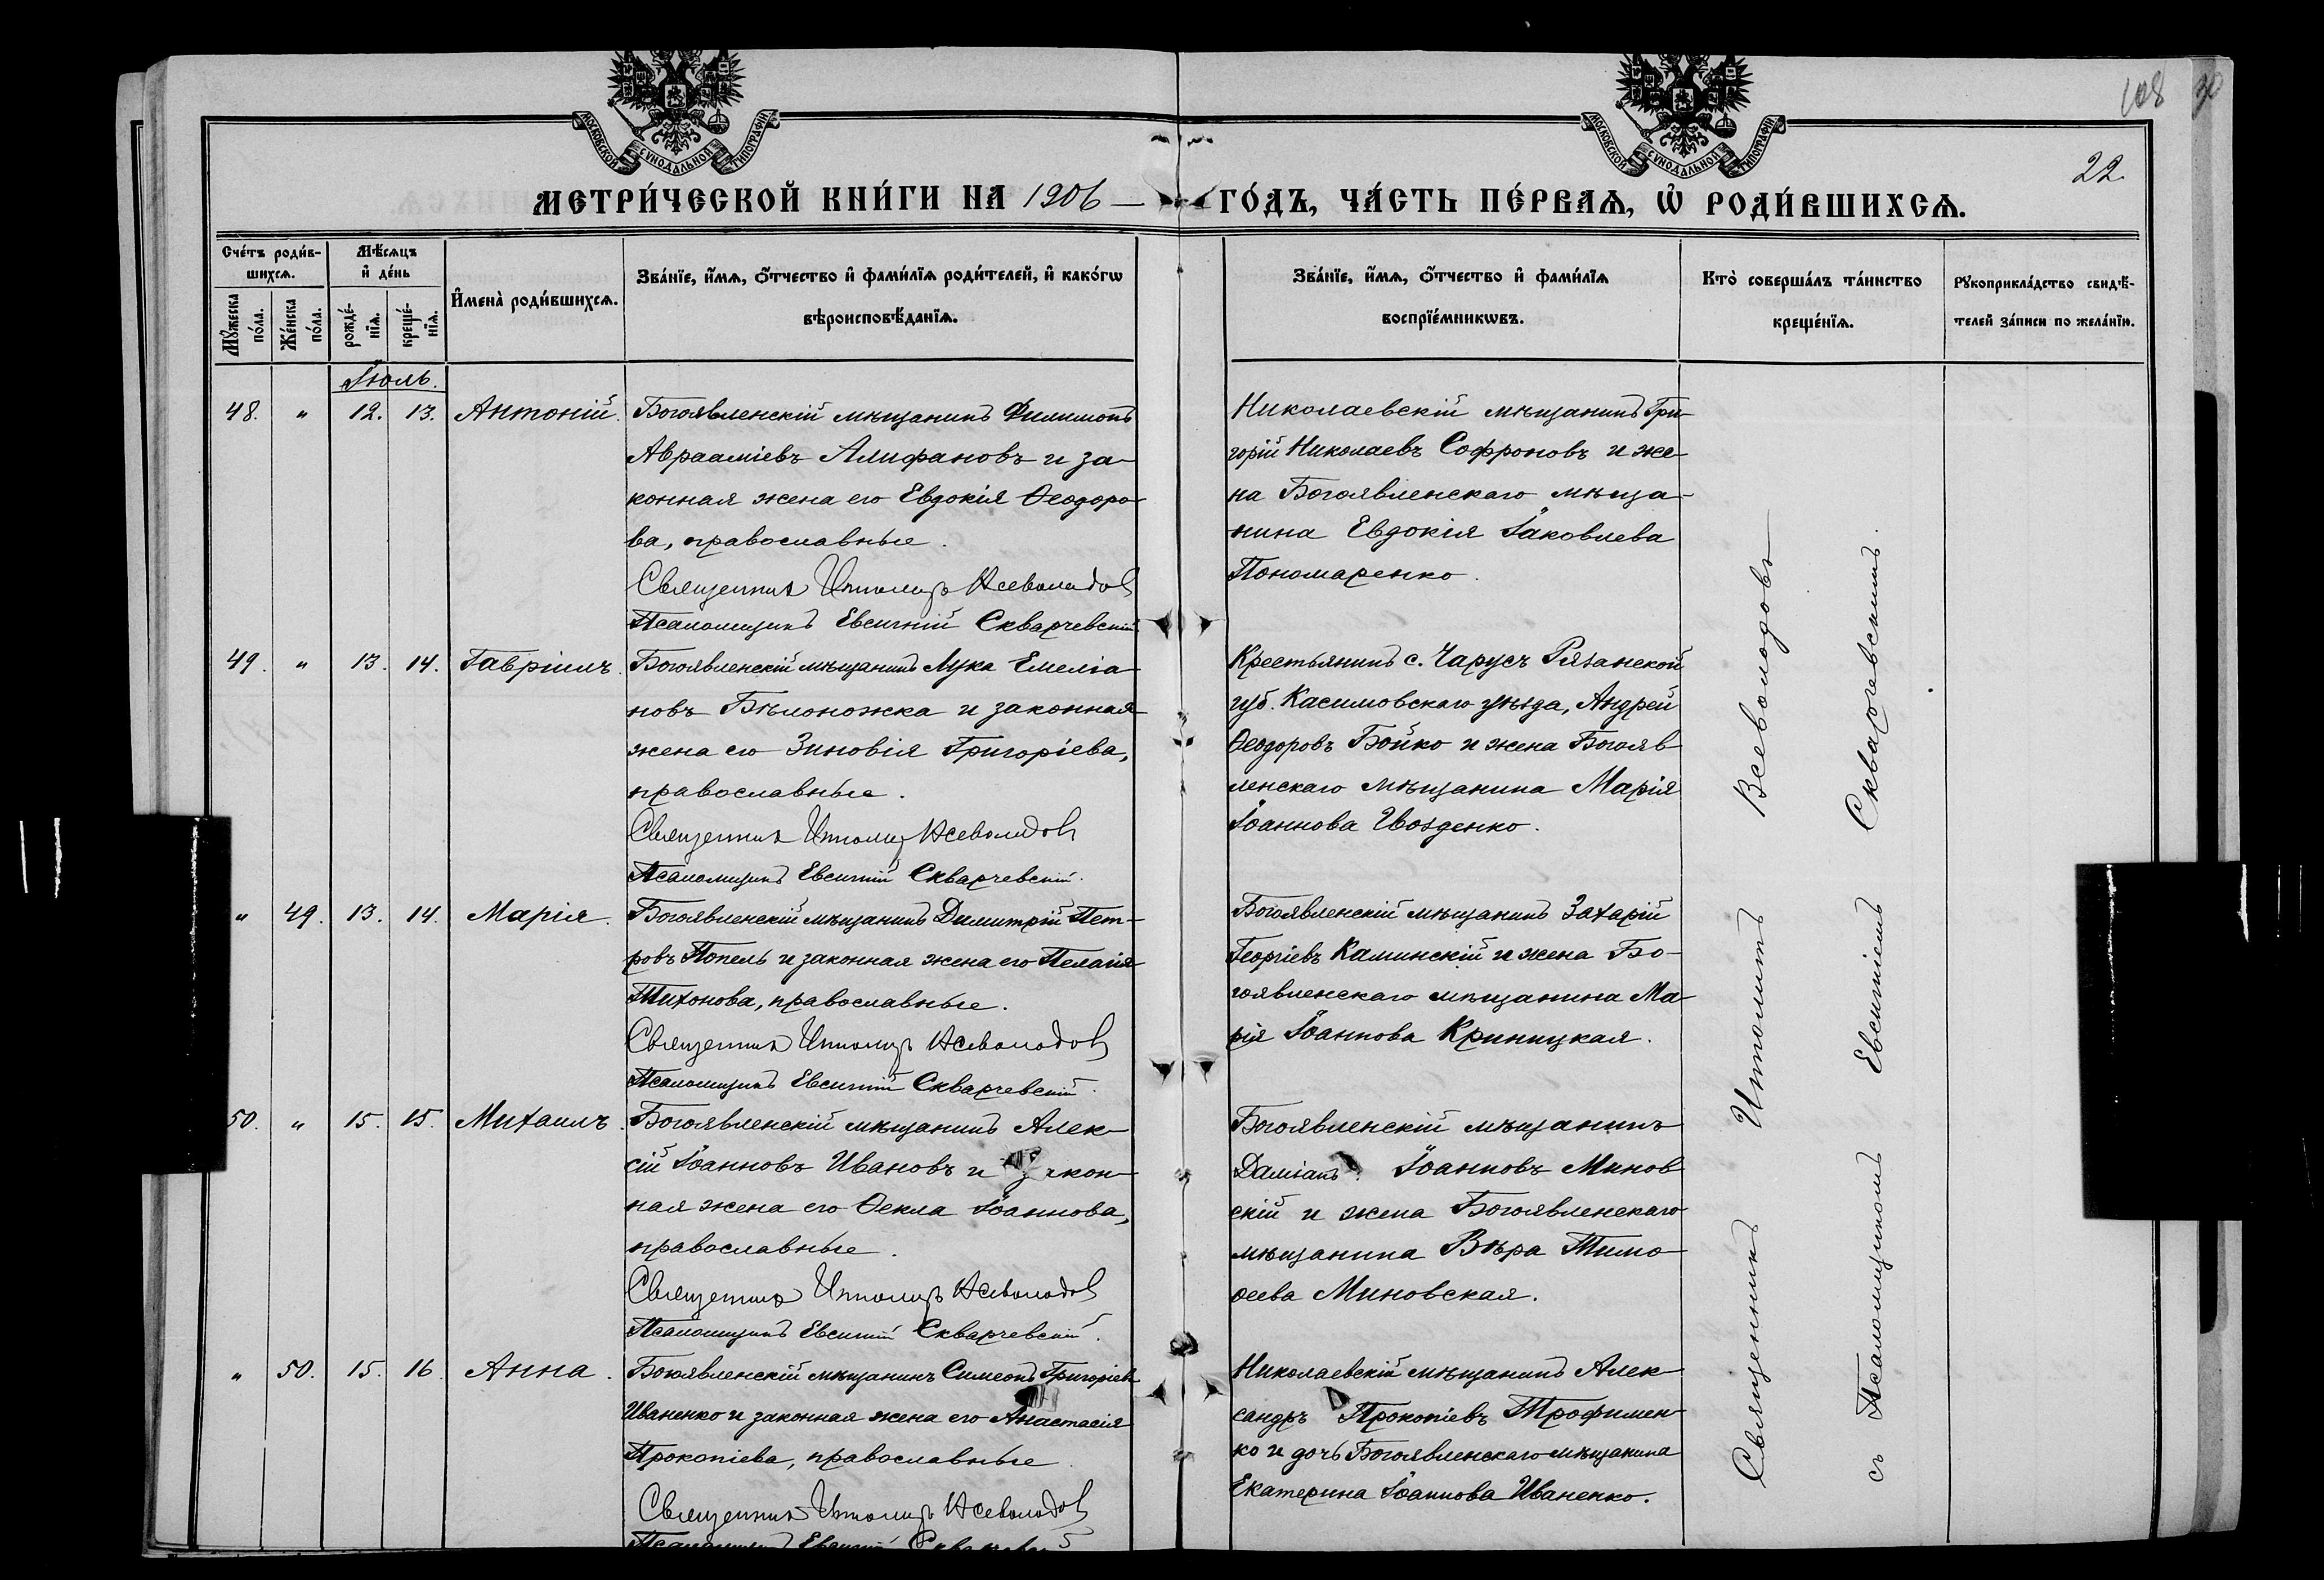 108 30
22.
МОСКОВСКОЙ СѴНОДАЛЬНОЙ ТИПОГРАФІИ
МОСКОВСКОЙ СѴНОДАЛЬНОЙ ТИПОГРАФІИ
МЕТРИ́ЧЕСКОЙ КНИ́ГИ НА 1906 ГО́ДЪ, ЧА́СТЬ ПЕ́РВАѦ, Ѡ҆ РОДИ́ВШИХСѦ.
Сче́тъ роди́в-
шихсѧ.
Мꙋ́жеска
по́ла.
Же́нска
по́ла.
Мѣ́сѧцъ
и҆ де́нь
рожде́-
нїѧ.
креще́-
нїѧ.
И҆мена̀ роди́вшихсѧ.
Зва́нїе, и҆́мѧ, ѻ҆́тчество и҆ фами́лїѧ роди́телей, и҆ како́гѡ
вѣроисповѣ́данїѧ.
Зва́нїе, и҆́мѧ, ѻ҆́тчество и҆ фами́лїѧ
воспрїе́мникѡвъ.
Кто̀ соверша́лъ та́инство
креще́нїѧ.
Рꙋкоприкла́дство свидѣ́-
телей за́писи по жела́нїю.
Іюль.
48. " 12. 13. Антоній.
Богоявленскій мѣщанинъ Филимонъ
Авраамiевъ Алифановъ и за-
конная жена его Евдокія Ѳеодоро-
ва, православные.
Священникъ Ипполитъ Всеволодовъ
Псаломщикъ Евсигній Скварчевскій
Николаевскій мѣщанинъ Гри-
горій Николаевъ Софроновъ и же-
на Богоявленскаго мѣща-
нина Евдокія Іаковлева
Пономаренко.
49. " 13. 14. Гавріилъ.
Богоявленскій мѣщанинъ Лука Емеліа-
новъ Бѣлоножка и законная
жена его Зиновія Григоріева,
православные.
Священникъ Ипполитъ Всеволодовъ
Псаломщикъ Евсигній Скварчевскій.
Крестьянинъ с. Чарусъ Рязанской
губ. Касимовскаго уѣзда, Андрей
Ѳеодоровъ Бойко и жена Богояв-
ленскаго мѣщанина Марія
Іоаннова Гвозденко.
" 49. 13. 14. Марія.
Богоявленскій мѣщанинъ Димитрій Пет-
ровъ Попель и законная жена его Пелагія
Тихонова, православные.
Священникъ Ипполитъ Всеволодовъ
Псаломщикъ Евсигній Скварчевскій.
Богоявленскій мѣщанинъ Захарій
Георгіевъ Каминскій и жена Бо-
гоявленскаго мѣщанина Ма-
рія Іоаннова Криницкая.
50. " 15. 15. Михаилъ.
Богоявленскій мѣщанинъ Алек-
сій Іоанновъ Ивановъ и закон-
ная жена его Ѳекла Іоаннова,
православные.
Священникъ Ипполитъ Всеволодовъ
Псаломщикъ Евсигній Скварчевскій.
Богоявленскій мѣщанинъ
Даміанъ Іоанновъ Минов-
скій и жена Богоявленскаго
мѣщанина Вѣра Тимо-
ѳеева Миновская.
" 50. 15. 16. Анна.
Богоявленскій мѣщанинъ Симеонъ Григоріевъ
Иваненко и законная жена его Анастасія
Прокопіева, православные.
Священникъ Ипполитъ Всеволодовъ
Псаломщикъ Евсигній Скварчевскій
Николаевскій мѣщанинъ Алек-
сандръ Прокопіевъ Трофимен-
ко и дочь Богоявленскаго мѣщанина
Екатерина Іоаннова Иваненко.
Священникъ Ипполитъ Всеволодовъ
съ Псаломщикомъ Евсигніемъ Скварчевскимъ.